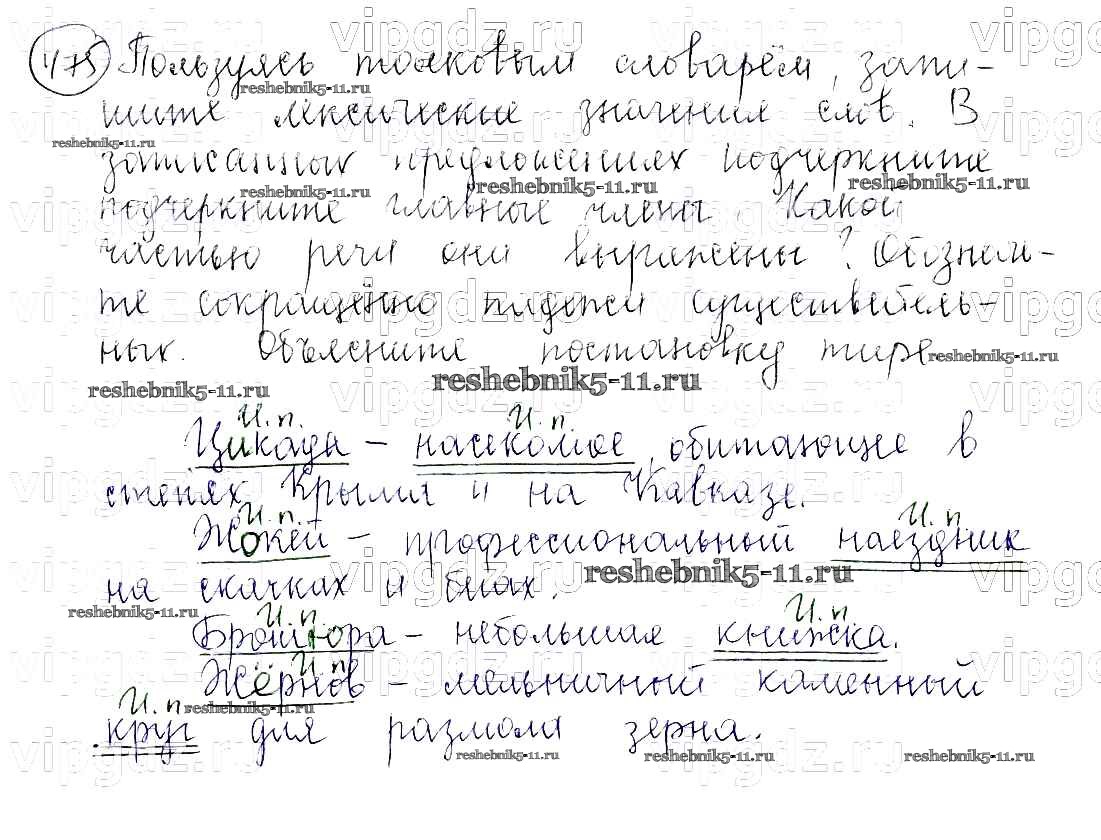 475 Пользуясь толковым словарём, запи-
шите лексические значения слов. В
записанных предложениях подчеркните
подчеркните главные члены. Какой
частью речи они выражены? Обозначь-
те сокращённо падежи существитель-
ных. Объясните постановку тире
И. п. И. п.
Цикада – насекомое, обитающее в
степях Крыма и на Кавказе.
И. п. И. п.
Жокей – профессиональный наездник
на скачках и бегах.
И. п. И. п.
Брошюра – небольшая книжка.
И. п.
Жёрнов – мельничный каменный
И. п.
круг для размола зерна.
vipgdz.ru
reshebnik5-11.ru